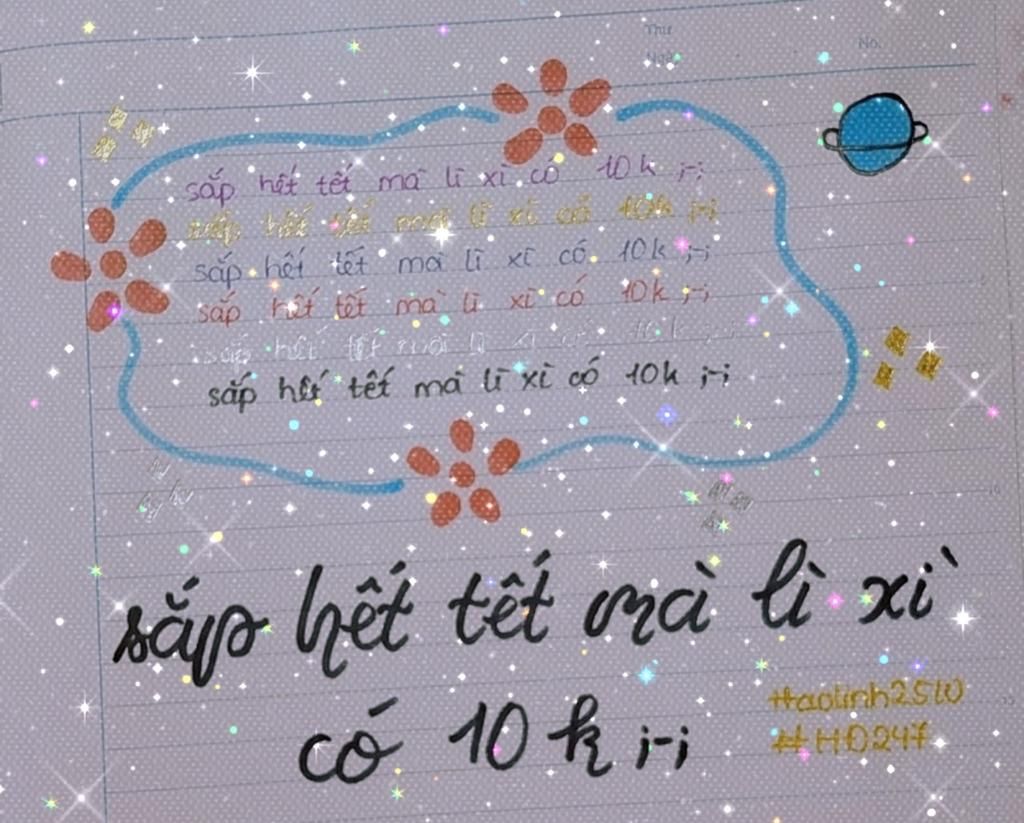 Thứ
Ngày
No.
sắp hết tết mà lì xì có 10k ;-;
sắp hết tết mà lì xì có 10k ;-;
sắp hết tết mà lì xì có 10k ;-;
sắp hết tết mà lì xì có 10k ;-;
sắp hết tết mà lì xì có 10k ;-;
sắp hết tết mà lì xì có 10k ;-;
sắp hết tết mà lì xì
có 10k ;-;
#aolinh2510
#HD247